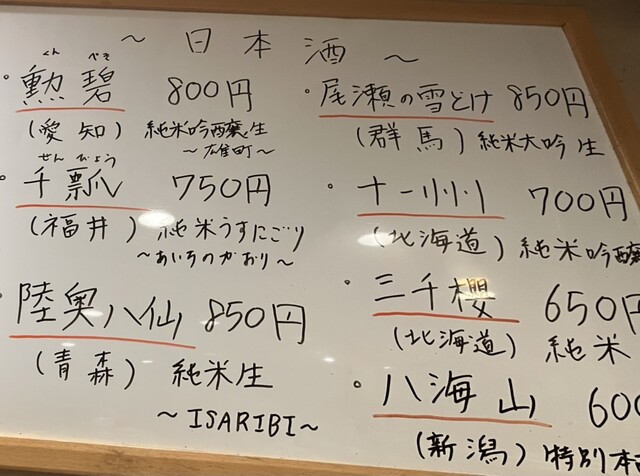 ～日本酒～
くん ぺき
・勲碧 800円
(愛知) 純米吟醸生
～雄町～
せん ぴょう
・千瓢 750円
(福井) 純米うすにごり
～あいちのかおり～
・陸奥八仙 850円
(青森) 純米生
～ISARIBI～
・尾瀬の雪どけ 850円
(群馬) 純米大吟生
・十一州 700円
(北海道) 純米吟醸
・三千櫻 650円
(北海道) 純米
・八海山 600
(新潟) 特別本